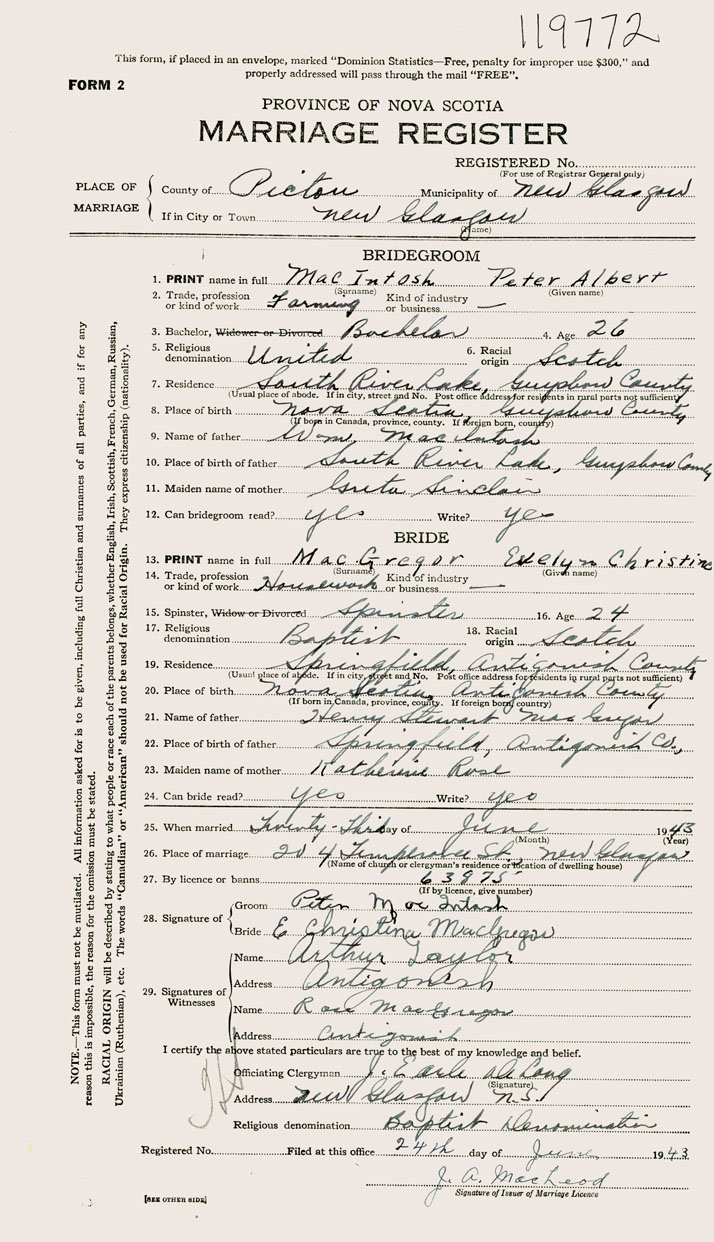 119772
This form, if placed in an envelope, marked "Dominion Statistics—Free, penalty for improper use $300," and
properly addressed will pass through the mail "FREE".
FORM 2
PROVINCE OF NOVA SCOTIA
MARRIAGE REGISTER
REGISTERED No.
(For use of Registrar General only)
PLACE OF MARRIAGE
County of Pictou Municipality of New Glasgow
If in City or Town New Glasgow
(Name)
BRIDEGROOM
1. PRINT name in full MacIntosh Peter Albert
(Surname) (Given name)
2. Trade, profession or kind of work Farming Kind of industry or business —
3. Bachelor, Widower or Divorced Bachelor 4. Age 26
5. Religious denomination United 6. Racial origin Scotch
7. Residence South River Lake, Guysboro County
(Usual place of abode. If in city, street and No. Post office address for residents in rural parts not sufficient)
8. Place of birth Nova Scotia, Guysboro County
(If born in Canada, province, county. If foreign born, country)
9. Name of father Wm. MacIntosh
10. Place of birth of father South River Lake, Guysboro County
11. Maiden name of mother Greta Sinclair
12. Can bridegroom read? yes Write? yes
BRIDE
13. PRINT name in full MacGregor Evelyn Christine
(Surname) (Given name)
14. Trade, profession or kind of work Housework Kind of industry or business —
15. Spinster, Widow or Divorced Spinster 16. Age 24
17. Religious denomination Baptist 18. Racial origin Scotch
19. Residence Springfield, Antigonish County
(Usual place of abode. If in city, street and No. Post office address for residents in rural parts not sufficient)
20. Place of birth Nova Scotia, Antigonish County
(If born in Canada, province, county. If foreign born, country)
21. Name of father Henry Stewart MacGregor
22. Place of birth of father Springfield, Antigonish Co.,
23. Maiden name of mother Katherine Rose
24. Can bride read? yes Write? yes
25. When married Twenty-Third day of June 1943
(Month) (Year)
26. Place of marriage 204 Temperance St., New Glasgow
(Name of church or clergyman's residence or location of dwelling house)
27. By licence or banns 63975
(If by licence, give number)
28. Signature of
Groom Peter MacIntosh
Bride E Christina MacGregor
29. Signatures of Witnesses
Name Arthur Taylor
Address Antigonish
Name Rose MacGregor
Address Antigonish
I certify the above stated particulars are true to the best of my knowledge and belief.
Officiating Clergyman J. Earle DeLong
(Signature)
Address New Glasgow N.S.
Religious denomination Baptist Denomination
Registered No. Filed at this office 24th day of June 1943
J. A. MacLeod
Signature of Issuer of Marriage Licence
[SEE OTHER SIDE]
NOTE.—This form must not be mutilated. All information asked for is to be given, including full Christian and surnames of all parties, and if for any
reason this is impossible, the reason for the omission must be stated.
RACIAL ORIGIN will be described by stating to what people or race each of the parents belongs, whether English, Irish, Scottish, French, German, Russian,
Ukrainian (Ruthenian), etc. The words "Canadian" or "American" should not be used for Racial Origin. They express citizenship (nationality).